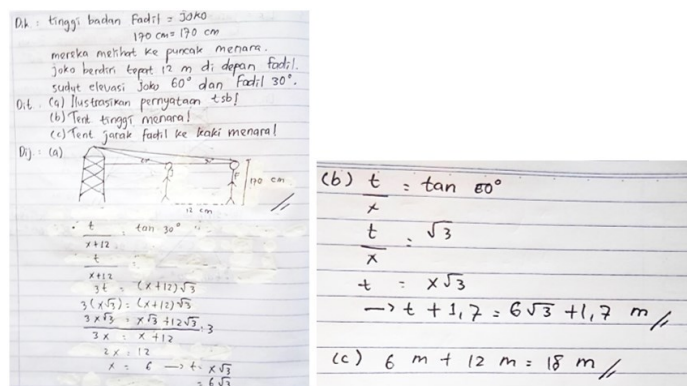 Dik : tinggi badan Fadil = Joko
170 cm = 170 cm
mereka melihat ke puncak menara.
joko berdiri tepat 12 m di depan fadil.
sudut elevasi joko 60° dan Fadil 30°.
Dit : (a) Ilustrasikan pernyataan tsb!
(b) Tent tinggi menara!
(c) Tent jarak fadil ke kaki menara!
Dij : (a)
170 cm
12 cm
t / x+12 = tan 30°
t / x+12 =
3t = (x+12)√3
3(x√3) = (x+12)√3
3x√3 = x√3 + 12√3 : 3
3x = x + 12
2x = 12
x = 6 → t = x√3
= 6√3
(b) t / x = tan 60°
t / x = √3
t = x√3
→ t + 1,7 = 6√3 + 1,7 m //
(c) 6 m + 12 m = 18 m //